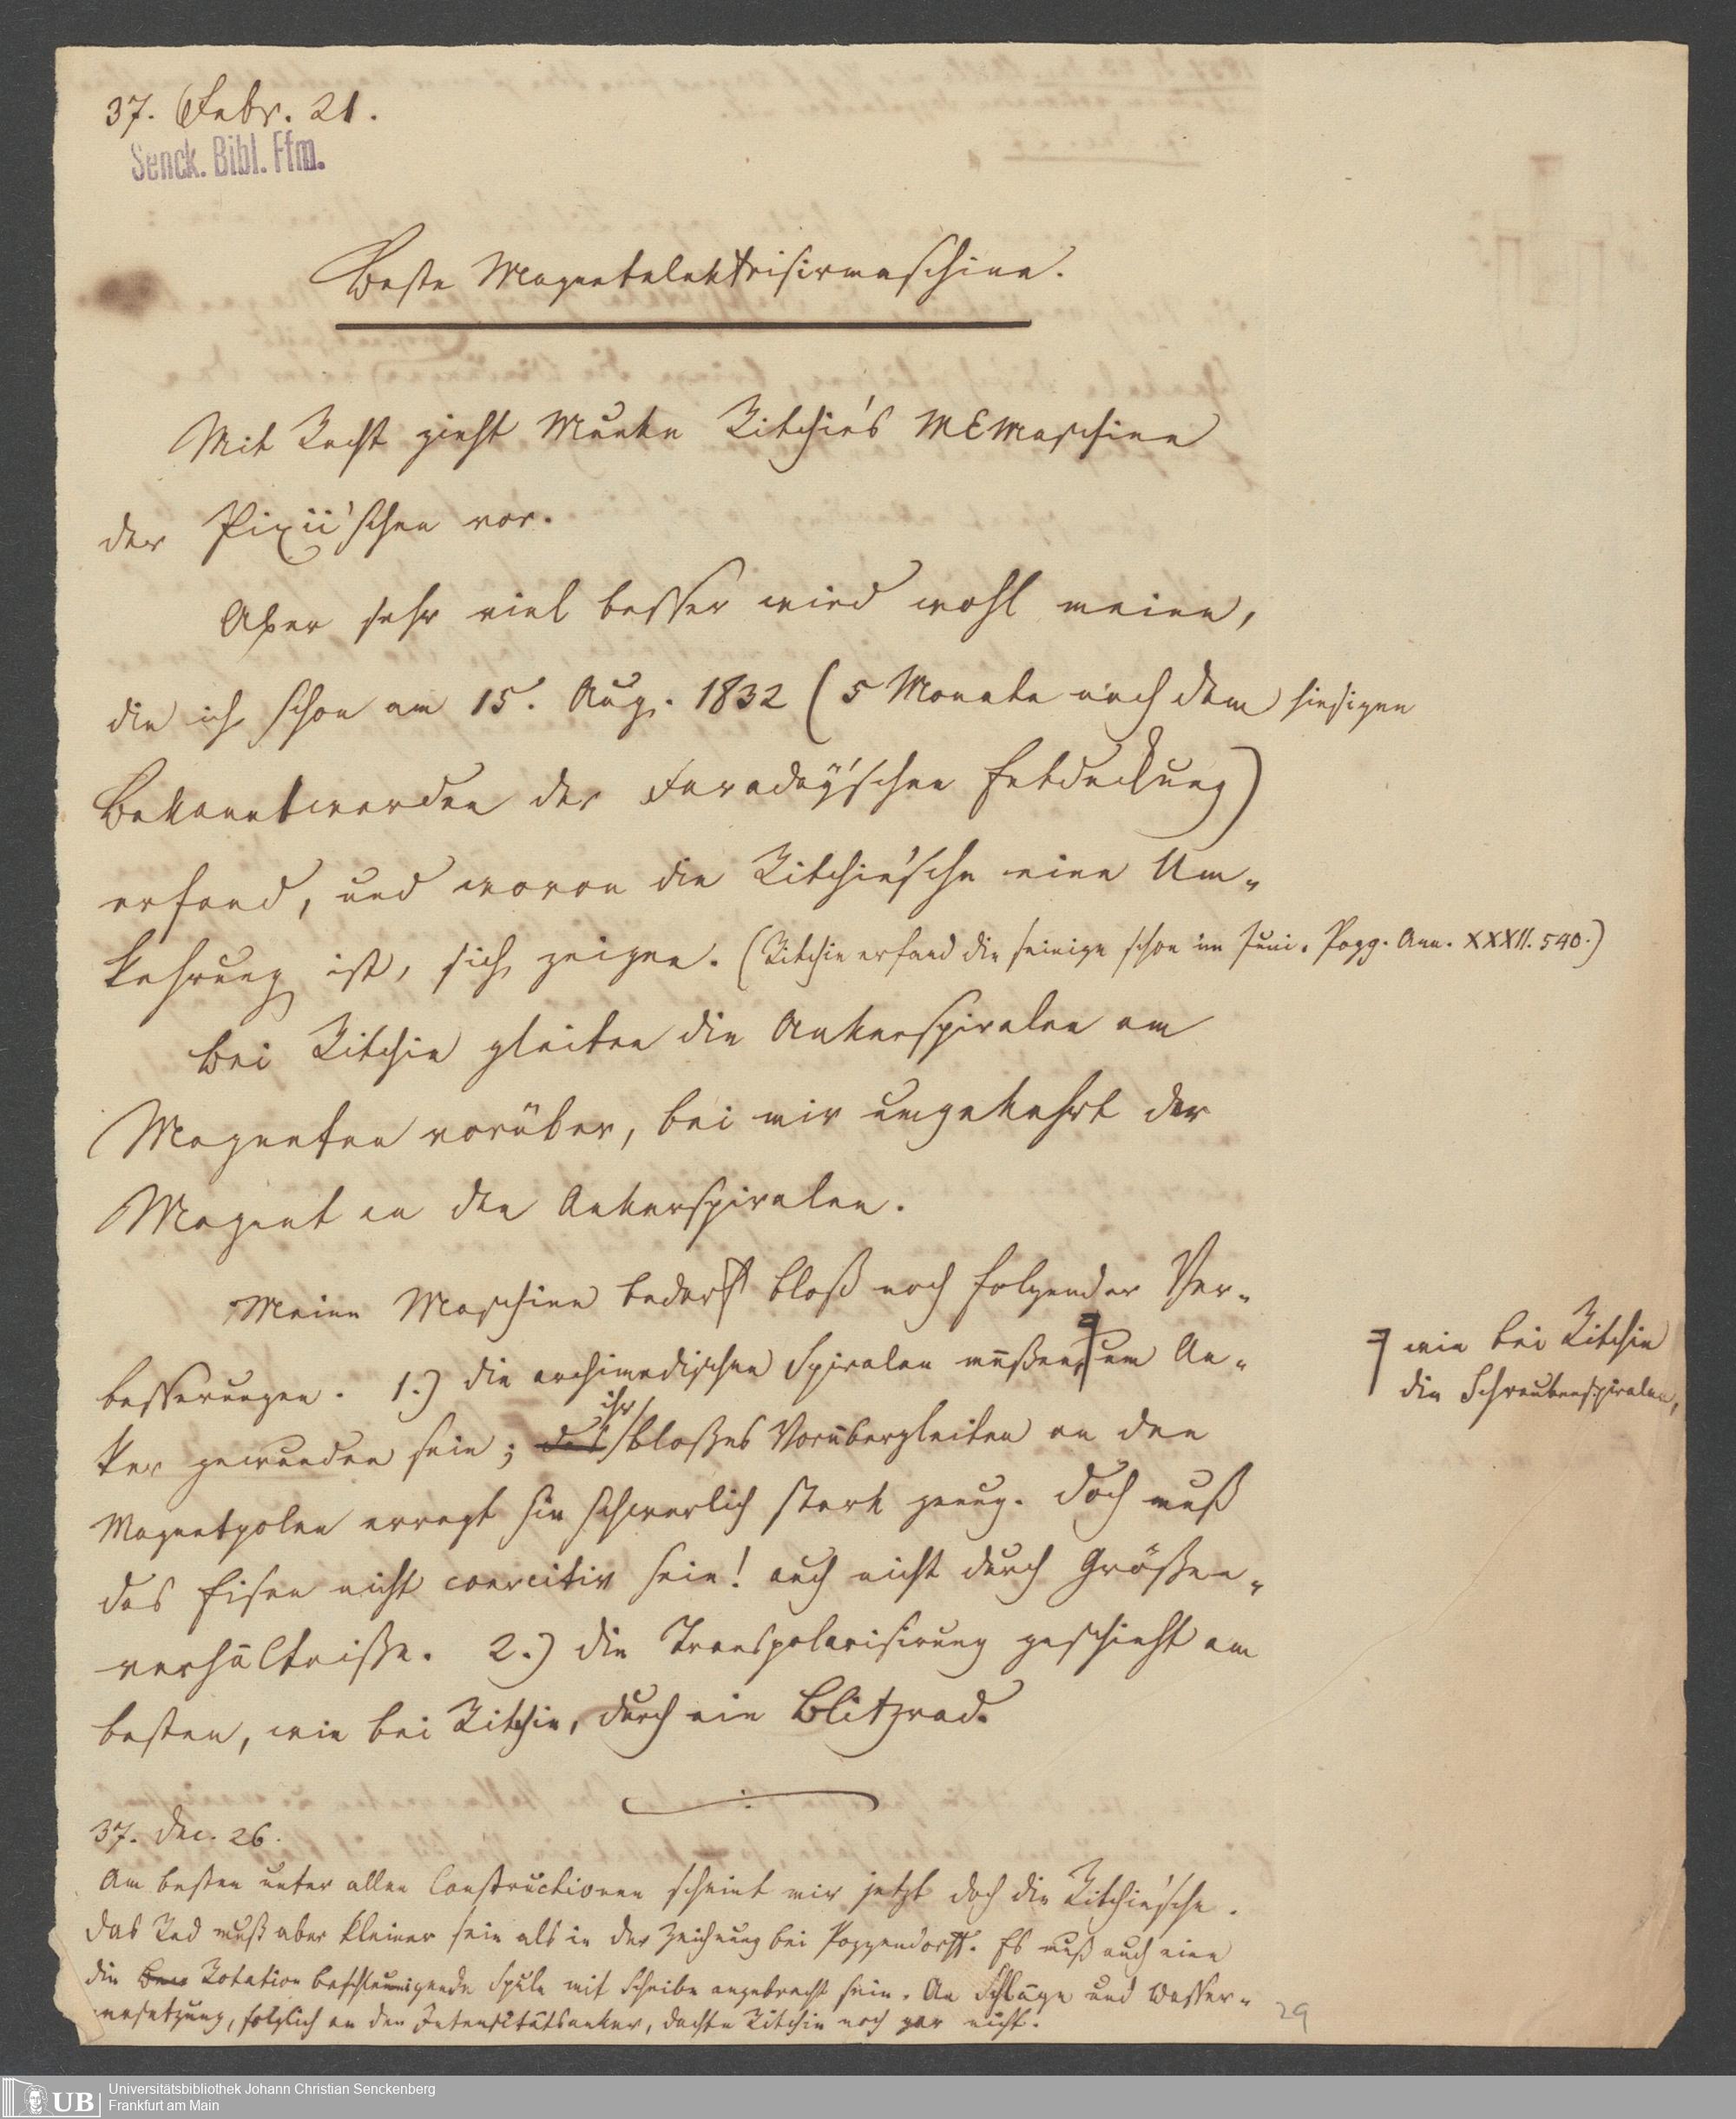 37. Febr. 21.
Senck. Bibl. Ffm.
Beste Magnetelektrisirmaschine.
Mit Recht zieht Munke Ritchie's MEMaschine
der Pixii'schen vor.
Aber sehr viel besser wird wohl meine,
die ich schon am 15. Aug. 1832 (5 Monate nach dem hiesigen
Bekanntwerden der Faraday'schen Entdeckung)
erfand, und wovon die Ritchie'sche eine Um-
kehrung ist, sich zeigen. (Ritchie erfand die seinige schon im Juni. Pogg. Ann. XXXII. 540.)
Bei Ritchie gleiten die Ankerspiralen am
Magneten vorüber, bei mir umgekehrt der
Magnet an den Ankerspiralen.
Meine Maschine bedarf bloß noch folgender Ver-
besserungen. 1.) die archimedischen Spiralen müßen, um An-
wie bei Ritchie
die Schraubenspiralen,
ker gewunden sein; das ihr bloßes Vorübergleiten an den
Magnetpolen erregt sie schwerlich stark genug. Doch muß
das Eisen nicht coercitiv sein! auch nicht durch Größen-
verhältniße. 2.) die Transpolarisirung geschieht am
besten, wie bei Ritchie, durch ein Blitzrad.
37. Dec. 26.
Am besten unter allen Constructionen scheint mir jetzt doch die Ritchie'sche.
Das Rad muß aber kleiner sein als in der Zeichnung bei Poggendorff. Es muß auch eine
die Rotation beschleunigende Spule mit Scheibe angebracht sein. An Schläge und Wasser-
zersetzung, folglich an den Intensitätsanker, dachte Ritchie noch gar nicht.
29
UB
Universitätsbibliothek Johann Christian Senckenberg
Frankfurt am Main